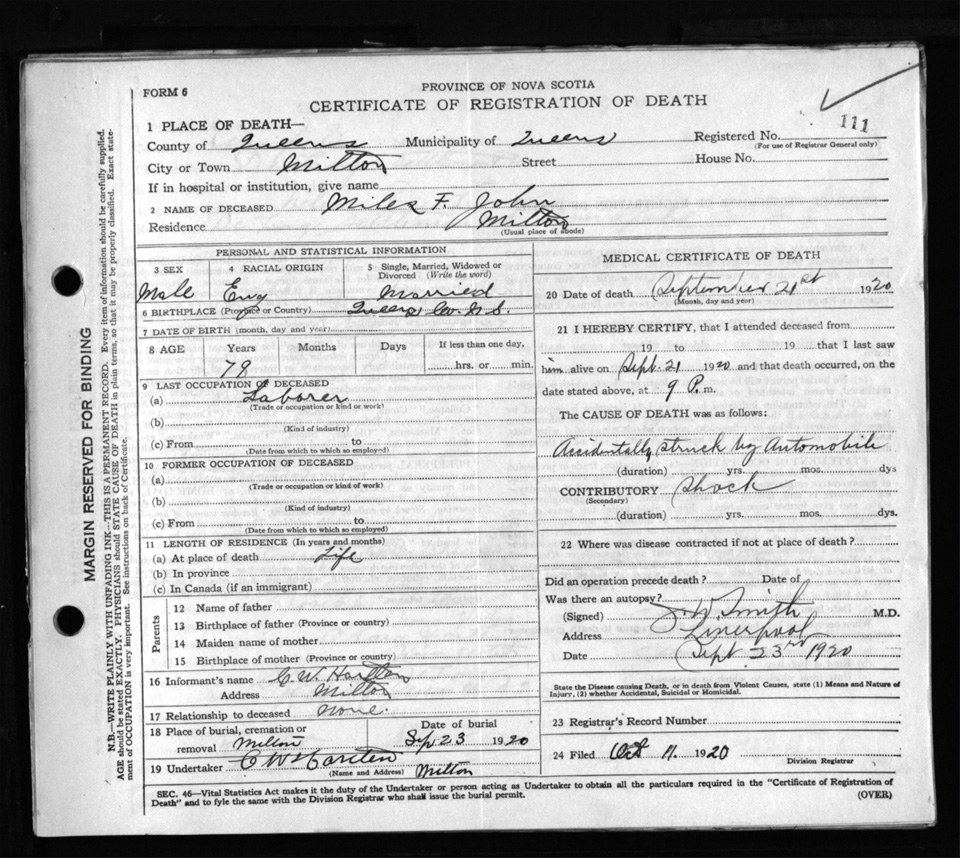 FORM 6
PROVINCE OF NOVA SCOTIA
CERTIFICATE OF REGISTRATION OF DEATH
111
1 PLACE OF DEATH—
County of Queens Municipality of Queens Registered No.
(For use of Registrar General only)
City or Town Milton Street House No.
If in hospital or institution, give name
2 NAME OF DECEASED Miles F. John
Residence Milton
(Usual place of abode)
PERSONAL AND STATISTICAL INFORMATION
3 SEX 4 RACIAL ORIGIN 5 Single, Married, Widowed or Divorced (Write the word)
Male Eng Married
6 BIRTHPLACE (Province or Country) Queens Co. N.S.
7 DATE OF BIRTH (month, day and year)
8 AGE Years Months Days If less than one day,
79 hrs. or min.
9 LAST OCCUPATION OF DECEASED
(a) Laborer
(Trade or occupation or kind or work)
(b)
(Kind of industry)
(c) From to
(Date from which to which so employed)
10 FORMER OCCUPATION OF DECEASED
(a)
(Trade or occupation or kind of work)
(b)
(Kind of industry)
(c) From to
(Date from which to which so employed)
11 LENGTH OF RESIDENCE (In years and months)
(a) At place of death Life
(b) In province
(c) In Canada (if an immigrant)
Parents
12 Name of father
13 Birthplace of father (Province or country)
14 Maiden name of mother
15 Birthplace of mother (Province or country)
16 Informant's name C. W.
Address Milton
17 Relationship to deceased None.
18 Place of burial, cremation or removal Milton
Date of burial Sep 23 1920
19 Undertaker C W
(Name and Address) Milton
MEDICAL CERTIFICATE OF DEATH
20 Date of death September 21st 1920
(Month, day and year)
21 I HEREBY CERTIFY, that I attended deceased from
19 to 19 that I last saw
him alive on Sept. 21 1920 and that death occurred, on the
date stated above, at 9 P. m.
The CAUSE OF DEATH was as follows:
Accidentally struck by Automobile
(duration) yrs. mos. dys
CONTRIBUTORY Shock
(Secondary)
(duration) yrs. mos. dys.
22 Where was disease contracted if not at place of death?
Did an operation precede death? Date of
Was there an autopsy?
(Signed) J. W. Smith M.D.
Address Liverpool
Date Sept 23rd 1920
State the Disease causing Death, or in death from Violent Causes, state (1) Means and Nature of
Injury, (2) whether Accidental, Suicidal or Homicidal.
23 Registrar's Record Number
24 Filed Oct 11. 1920
Division Registrar
SEC. 46—Vital Statistics Act makes it the duty of the Undertaker or person acting as Undertaker to obtain all the particulars required in the "Certificate of Registration of
Death" and to fyle the same with the Division Registrar who shall issue the burial permit. (OVER)
MARGIN RESERVED FOR BINDING
N.B.—WRITE PLAINLY WITH UNFADING INK—THIS IS A PERMANENT RECORD. Every item of information should be carefully supplied.
AGE should be stated EXACTLY. PHYSICIANS should STATE CAUSE OF DEATH in plain terms, so that it may be properly classified. Exact state-
ment of OCCUPATION is very important. See instructions on back of Certificate.